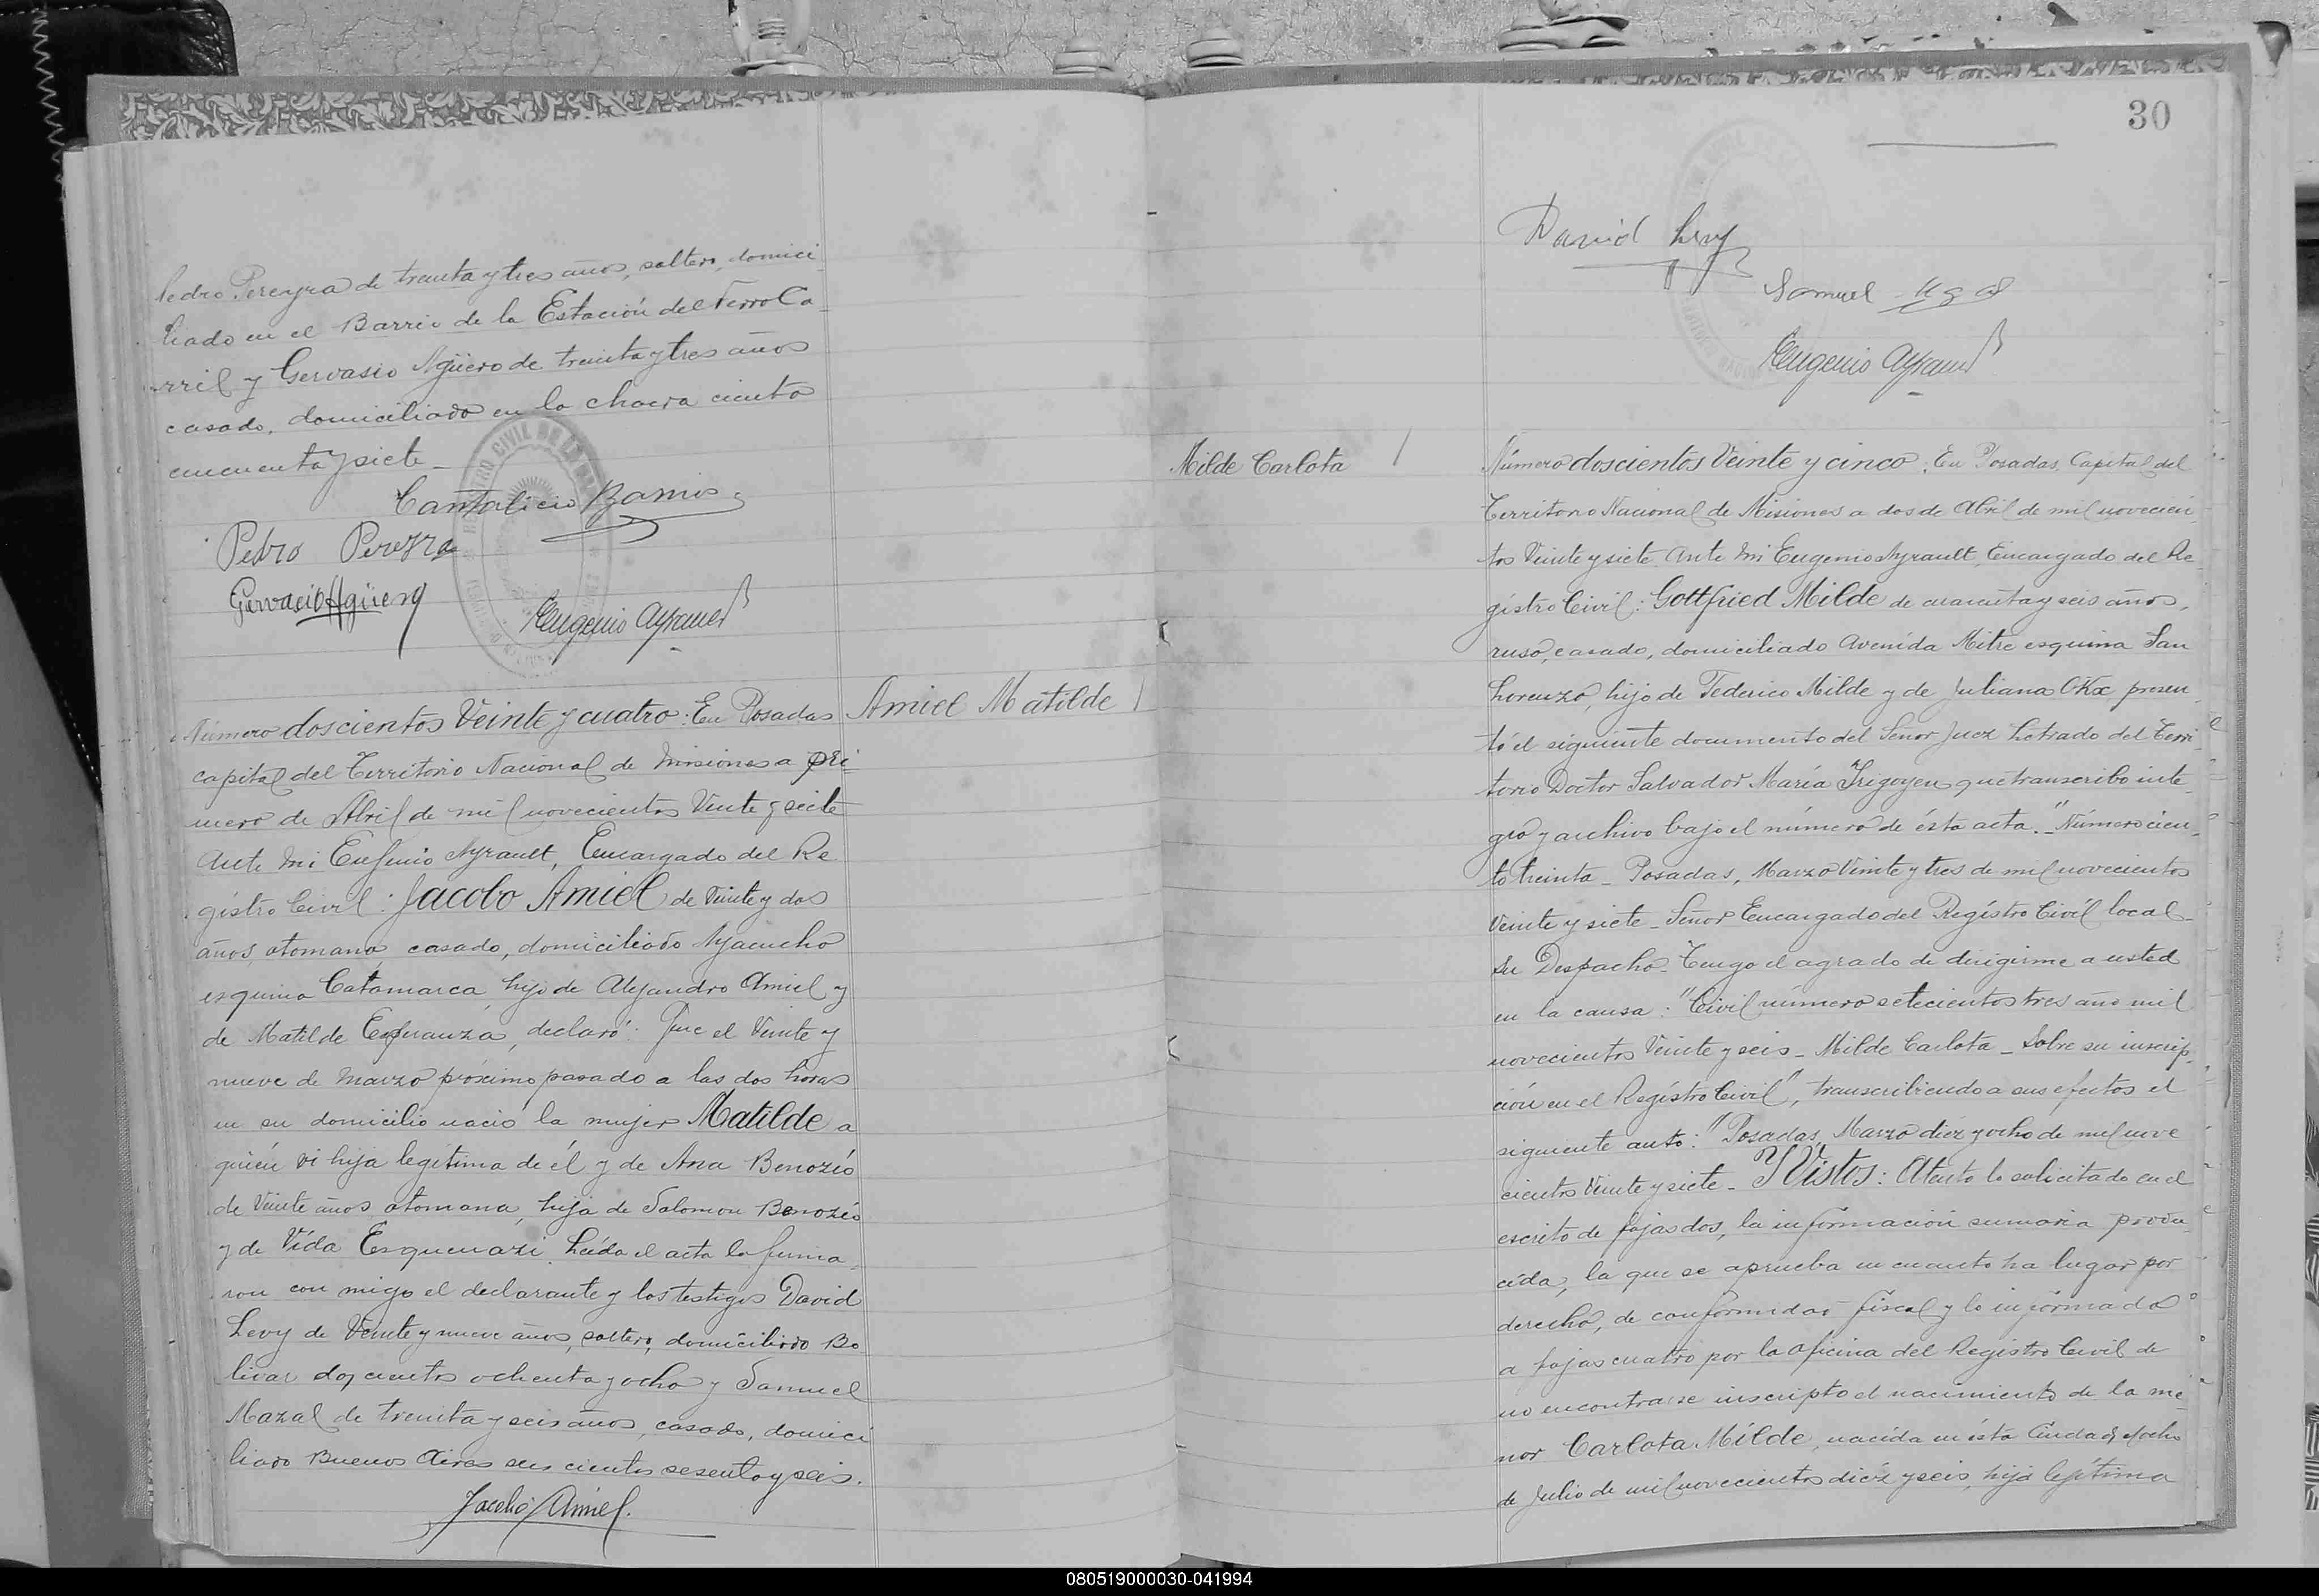 Pedro Pereyra de treinta y tres años, soltero, domici
liado en el Barrio de la Estación del Ferro Ca
rril y Gervasio Agüero de treinta y tres años
casado, domiciliado en la chacra ciento
cincuenta y siete_
Cantalicio Ramos
Pedro Pereyra
Gervacio Agüero
Eugenio Ayrault
Amiel Matilde
Número doscientos Veinte y cuatro: En Posadas
capital del Territorio Nacional de Misiones a pri
mero de Abril de mil novecientos Veinte y siete
Ante mi Eugenio Ayrault, Encargado del Re
gistro Civil: Jacobo Amiel de Veinte y dos
años, otomano, casado, domiciliado Ayacucho
esquina Catamarca, hijo de Alejandro Amiel y
de Matilde declaró: Que el Veinte y
nueve de Marzo próximo pasado a las dos horas
en su domicilio nació la mujer Matilde a
quién vi hija legítima de él y de Ana Benozió
de Veinte años otomana, hija de Salomon Benozió
y de Vida Esquenazi. Leída el acta la firma
ron con migo el declarante y los testigos David
Levy de Veinte y nueve años, soltero, domiciliado Bo
livar doscientos ochenta y ocho y Samuel
Mazal de treinta y seis años, casado, domici
liado Buenos Aires seis cientos sesenta y seis.
Jacobo Amiel.
30
David Levy
Samuel
Eugenio Ayrault
Milde Carlota
Número doscientos Veinte y cinco. En Posadas, Capital del
Territorio Nacional de Misiones a dos de Abril de mil novecien
tos Veinte y siete. Ante mi Eugenio Ayrault, Encargado del Re
gistro Civil: Gottfried Milde de cuarenta y seis años,
ruso, casado, domiciliado Avenida Mitre esquina San
Lorenzo, hijo de Federico Milde y de Juliana presen
tó el siguiente documento del Señor Juez Letrado del Terri
torio Doctor Salvador María Irigoyen que transcribo inte
gro y archivo bajo el número de ésta acta._"Número cien
to treinta_ Posadas, Marzo Veinte y tres de mil novecientos
Veinte y siete_ Señor Encargado del Registro Civil local_
Su Despacho_ Tengo el agrado de dirigirme a usted
en la causa: "Civil número setecientos tres año mil
novecientos Veinte y seis_ Milde Carlota_ Sobre su inscrip_
ción en el Registro Civil", transcribiendo a sus efectos el
siguiente auto: "Posadas, Marzo diéz y ocho de mil nove
cientos Veinte y siete_ Y Vistos: Atento lo solicitado en el
escrito de fojas dos, la información sumaria produ
cida, la que se aprueba en cuanto ha lugar por
derecho, de conformidad fiscal y lo informado
a fojas cuatro por la oficina del Registro Civil de
no encontrarse inscripto el nacimiento de la me
nor Carlota Milde, nacida en ésta Ciudad, el ocho
de Julio de mil novecientos diéz y seis, hija legítima
080519000030-041994